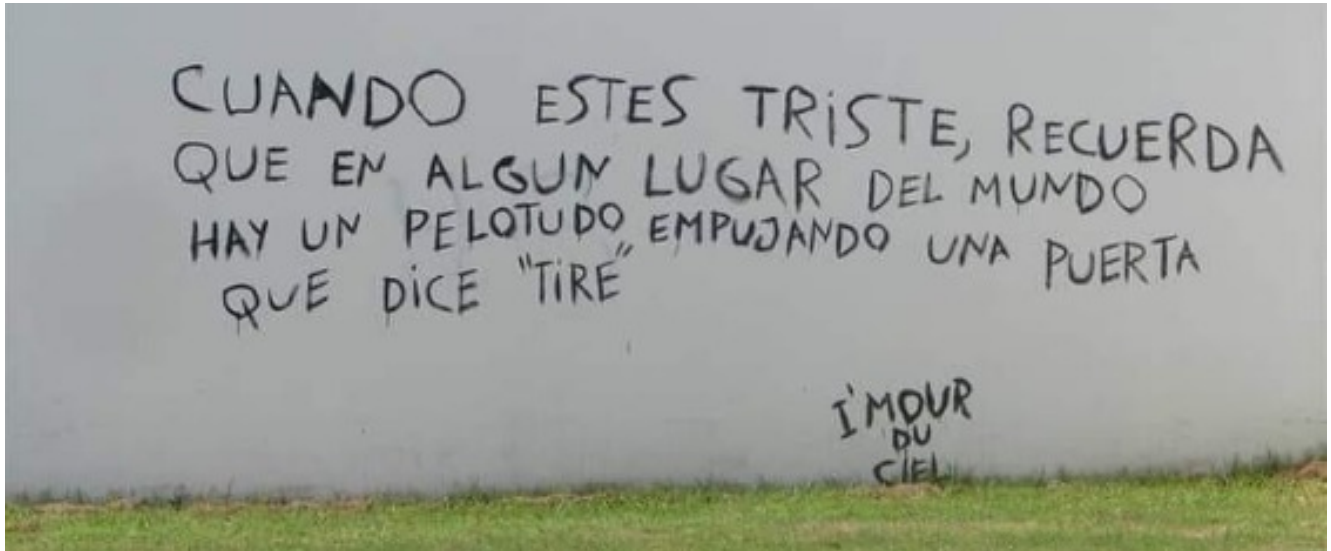 CUANDO ESTES TRiSTE, RECUERDA
QUE EN ALGUN LUGAR DEL MUNDO
HAY UN PELOTUDO EMPUJANDO UNA PUERTA
QUE DiCE "TiRE"
I'MOUR
DU
CIEL